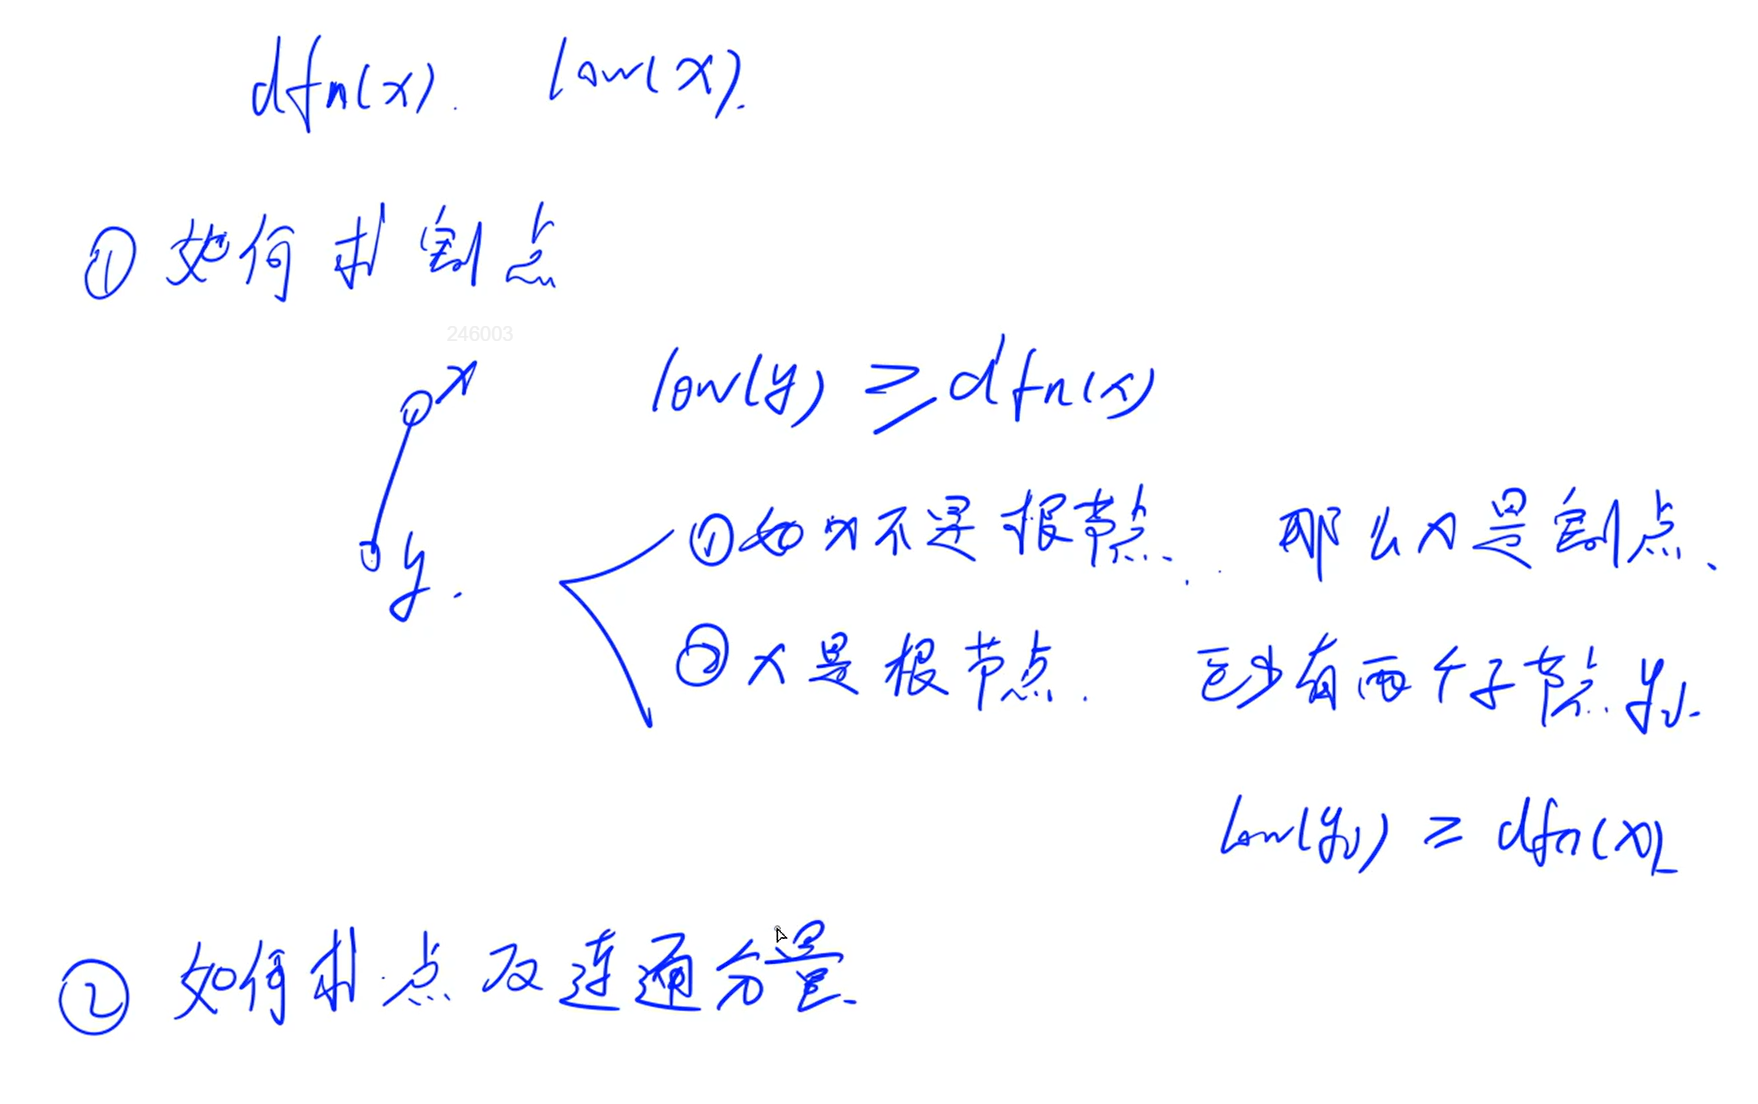 dfn(x). low(x).
① 如何求割点
246003
x
low(y) ≥ dfn(x)
① 如x不是根节点. 那么x是割点、
y.
② x是根节点. 至少有两个子节点 yi.
low(yi) ≥ dfn(x)
② 如何求点双连通分量.